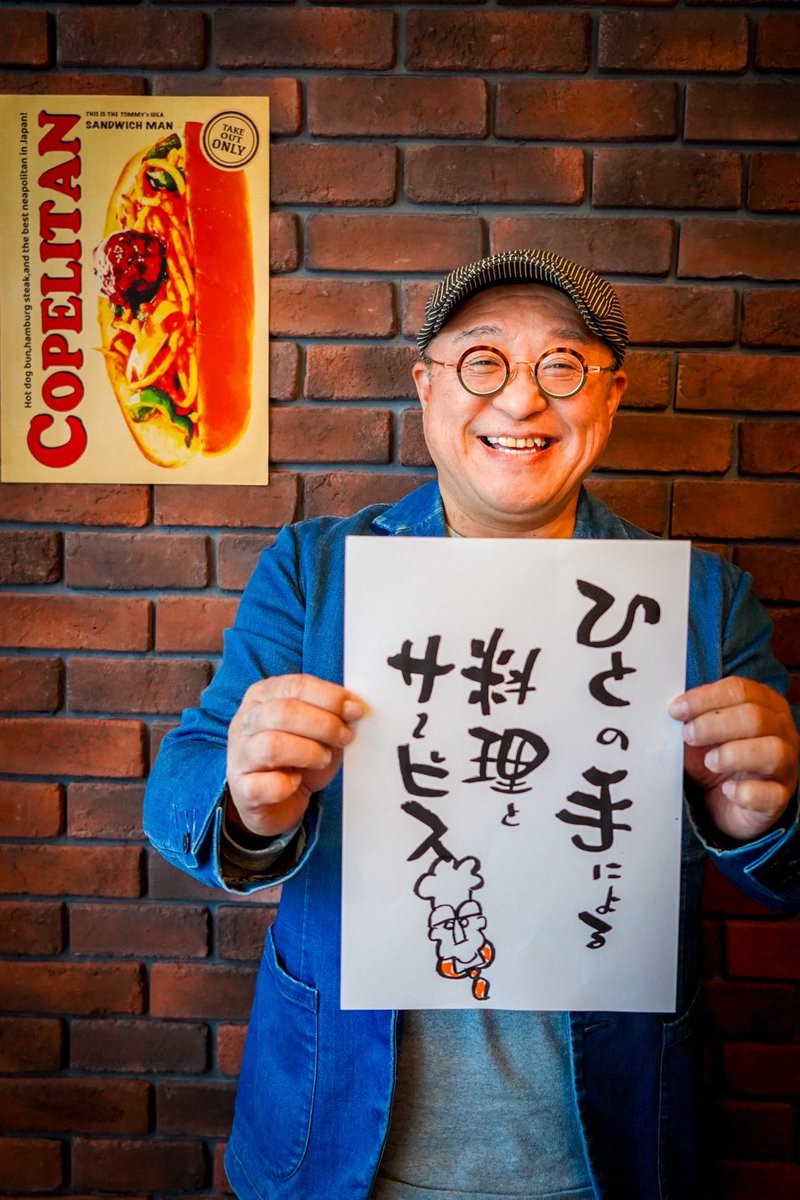 THIS IS THE TOMMY's IDEA
SANDWICH MAN
TAKE
OUT
ONLY
COPELITAN
Hot dog bun,hamburg steak,and the best neapolitan in Japan!
ひとの手による
料理と
サービス